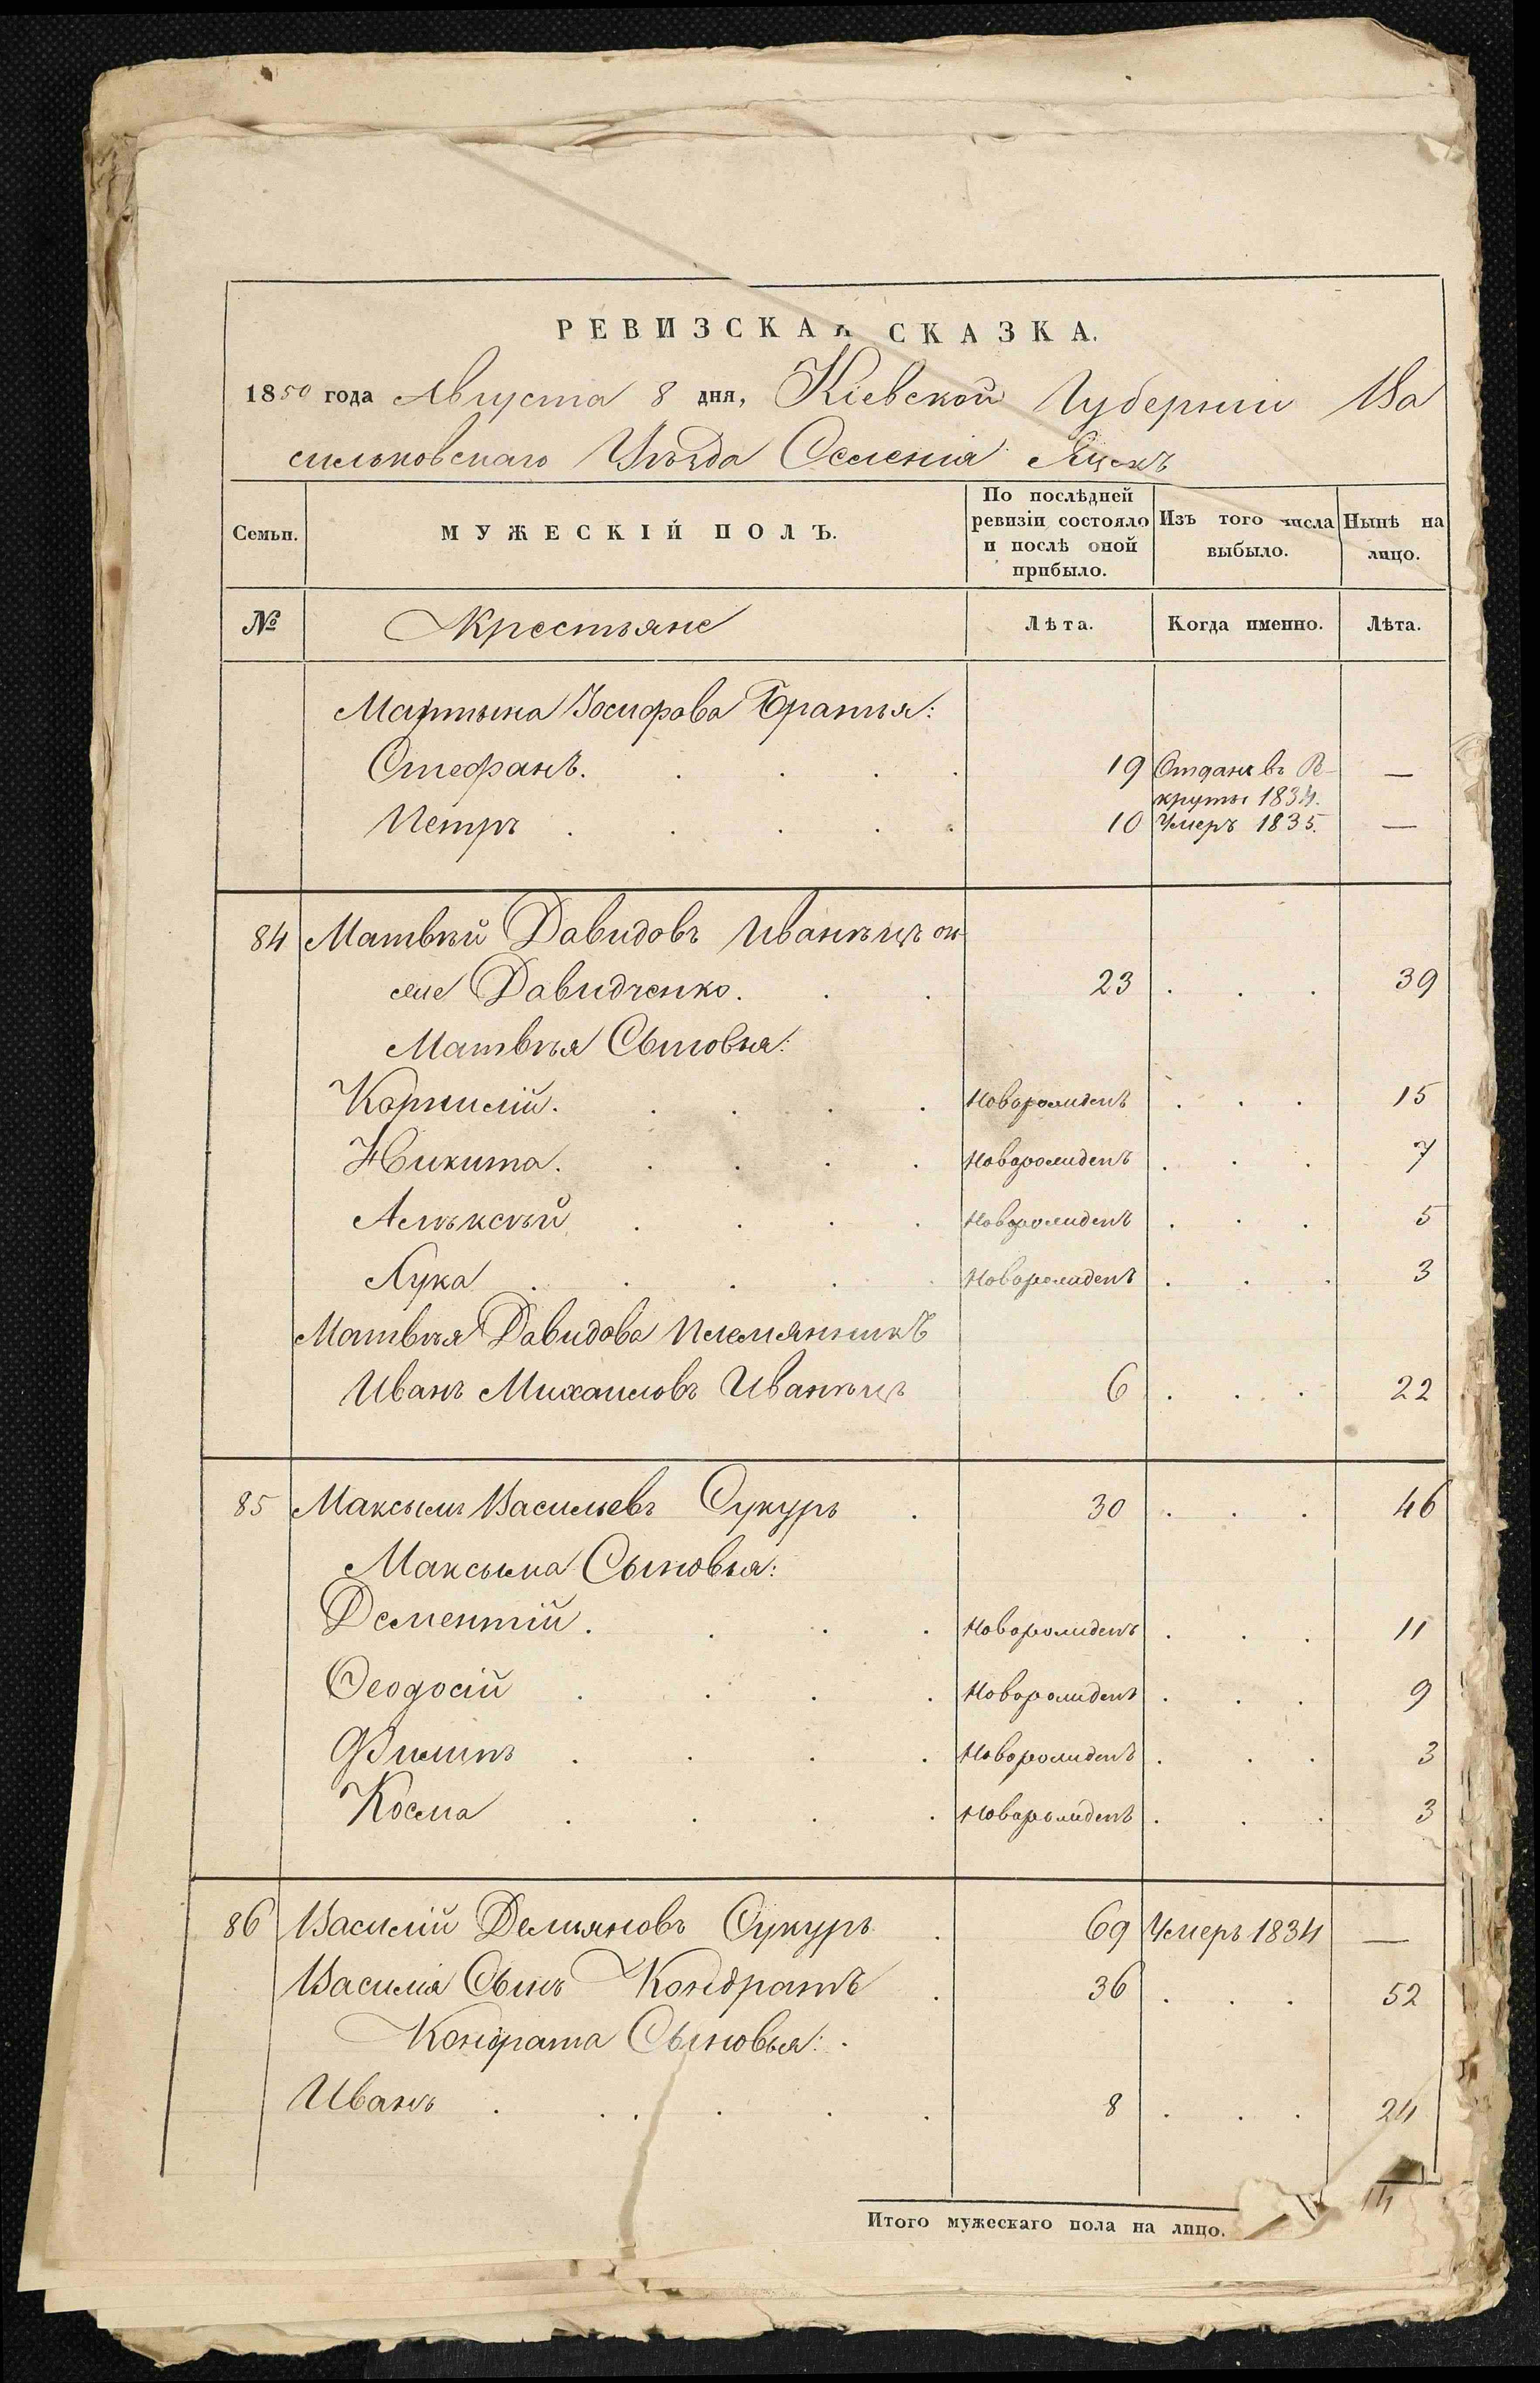 РЕВИЗСКАЯ СКАЗКА.
1850 года Августа 8 дня, Кіевской Губерніи Ва
сильковскаго Уѣзда Селенія Яцекъ
Семьи. МУЖЕСКІЙ ПОЛЪ. По послѣдней ревизіи состояло и послѣ оной прибыло. Изъ того числа выбыло. Нынѣ на лицо.
№ Крестьяне Лѣта. Когда именно. Лѣта.
Мартына Іосифова Братья:
Стефанъ. 19 Отданъ въ Ре-
круты 1834. —
Петръ 10 Умеръ 1835. —
84 Матвѣй Давидовъ Иванѣцъ он
же Давидченко. 23 39
Матвѣя Сыновья:
Корнилій. Новорожденъ 15
Никита. Новорожденъ 7
Алѣксѣй Новорожденъ 5
Лука Новорожденъ 3
Матвѣя Давидова Племянникъ
Иванъ Михаиловъ Иванѣцъ 6 22
85 Максымъ Васильевъ Сукуръ 30 46
Максыма Сыновья:
Дементій. Новорожденъ 11
Ѳеодосій Новорожденъ 9
Филипъ Новорожденъ 3
Косма Новорожденъ 3
86 Василій Демьяновъ Сукуръ 69 Умеръ 1834 —
Василія Сынъ Кондратъ 36 52
Кондрата Сыновья:
Иванъ 8 24
Итого мужескаго пола на лицо. 14